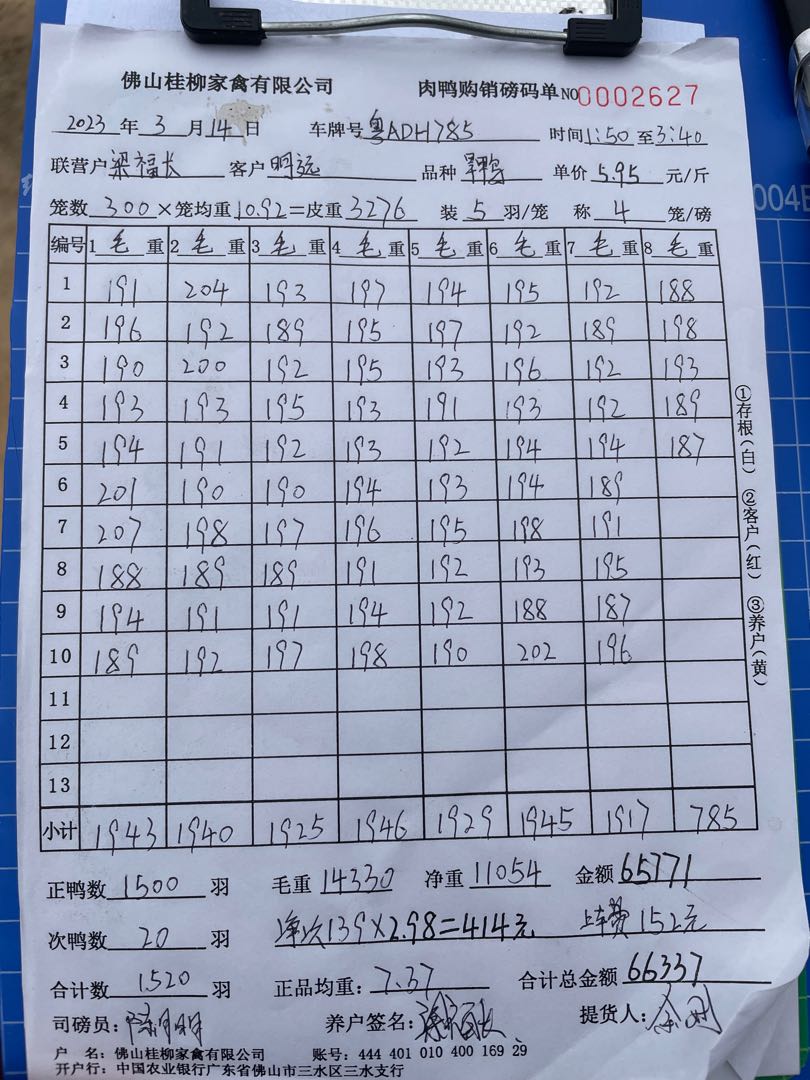 佛山桂柳家禽有限公司 肉鸭购销磅码单 NO 0002627
2023 年 3 月 14 日 车牌号 粤ADH785 时间 1:50 至 3:40
联营户 梁福长 客户 明远 品种 单价 5.95 元/斤
笼数 300 ×笼均重 10.92 =皮重 3276 装 5 羽/笼 称 4 笼/磅
编号 1 毛 重 2 毛 重 3 毛 重 4 毛 重 5 毛 重 6 毛 重 7 毛 重 8 毛 重
1 191 204 193 197 194 195 192 188
2 196 192 189 195 197 192 189 198
3 190 200 192 195 193 196 192 193
4 193 193 195 193 191 193 192 189
5 194 191 192 193 192 194 194 187
6 201 190 190 194 193 194 189
7 207 198 197 196 195 198 191
8 188 189 189 191 192 193 195
9 194 191 191 194 192 188 187
10 189 192 197 198 190 202 196
11
12
13
小计 1943 1940 1925 1946 1929 1945 1917 785
①存根(白) ②客户(红) ③养户(黄)
正鸭数 1500 羽 毛重 14330 净重 11054 金额 65771
次鸭数 20 羽 净次139×2.98=414元 上车费152元
合计数 1520 羽 正品均重: 7.37 合计总金额 66337
司磅员: 养户签名: 提货人:
户 名: 佛山桂柳家禽有限公司 账号: 444 401 010 400 169 29
开户行: 中国农业银行广东省佛山市三水区三水支行
004B